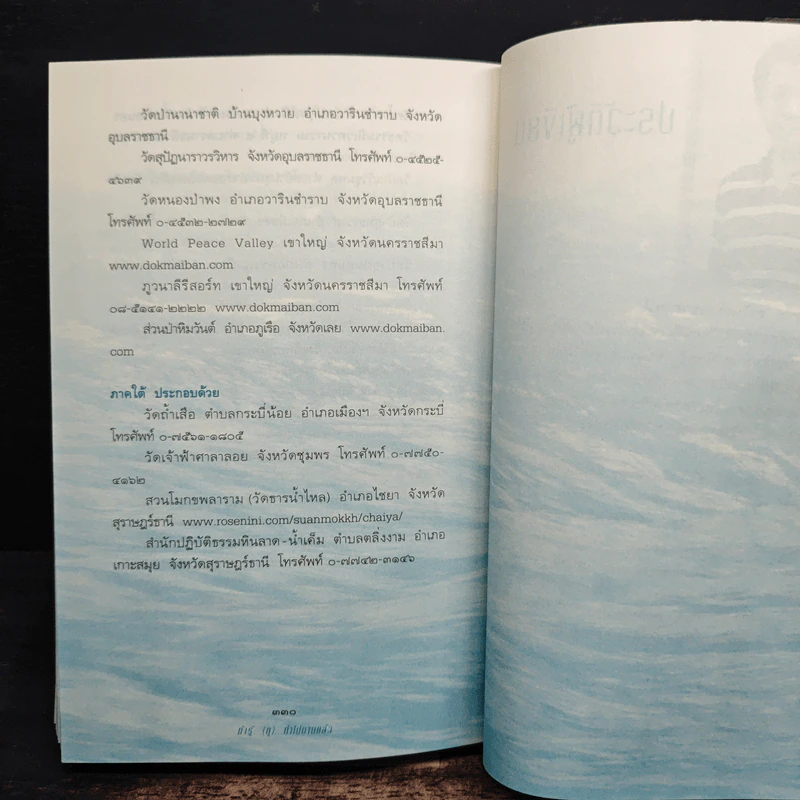 วัดป่านานาชาติ บ้านบุงหวาย อำเภอวารินชำราบ จังหวัด
อุบลราชธานี
วัดสุปัฏนาราวรวิหาร จังหวัดอุบลราชธานี โทรศัพท์ ๐-๔๕๒๕-
๔๖๓๙
วัดหนองป่าพง อำเภอวารินชำราบ จังหวัดอุบลราชธานี
โทรศัพท์ ๐-๔๕๓๒-๒๗๒๙
World Peace Valley เขาใหญ่ จังหวัดนครราชสีมา
www.dokmaiban.com
ภูวนาลีรีสอร์ท เขาใหญ่ จังหวัดนครราชสีมา โทรศัพท์
๐๘-๕๑๔๑-๒๒๒๒ www.dokmaiban.com
ส่วนป่าหิมวันต์ อำเภอภูเรือ จังหวัดเลย www.dokmaiban.
com
ภาคใต้ ประกอบด้วย
วัดถ้ำเสือ ตำบลกระบี่น้อย อำเภอเมืองฯ จังหวัดกระบี่
โทรศัพท์ ๐-๗๕๖๑-๑๘๐๕
วัดเจ้าฟ้าศาลาลอย จังหวัดชุมพร โทรศัพท์ ๐-๗๗๕๐-
๔๑๖๒
สวนโมกขพลาราม (วัดธารน้ำไหล) อำเภอไชยา จังหวัด
สุราษฎร์ธานี www.rosenini.com/suanmokkh/chaiya/
สำนักปฏิบัติธรรมหินลาด-น้ำเค็ม ตำบลตลิ่งงาม อำเภอ
เกาะสมุย จังหวัดสุราษฎร์ธานี โทรศัพท์ ๐-๗๗๔๒-๓๑๔๖
๓๓๐